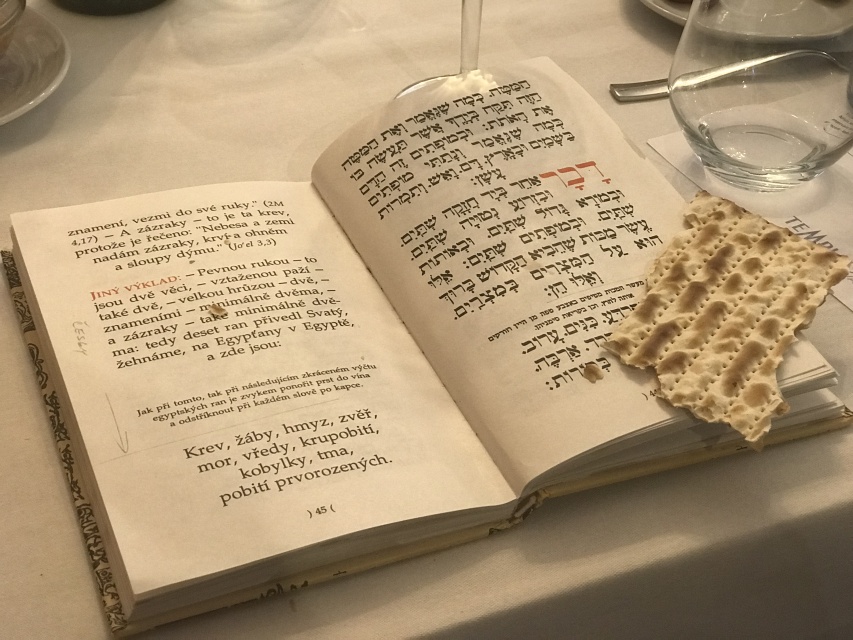 znamení, vezmi do své ruky." (2M
4,17) – A zázraky – to je ta krev,
protože je řečeno: "Nebesa a zemi
nadám zázraky, krví a ohněm
a sloupy dýmu." (Jo'el 3,3)
JINÝ VÝKLAD: – Pevnou rukou – to
jsou dvě věci, – vztaženou paží –
také dvě, – velkou hrůzou – dvě, –
znameními – minimálně dvěma, –
a zázraky – také minimálně dvě-
ma: tedy deset ran přivedl Svatý,
žehnáme, na Egypťany v Egyptě,
a zde jsou:
česky
Jak při tomto, tak při následujícím zkráceném výčtu
egyptských ran je zvykem ponořit prst do vína
a odstříknout při každém slově po kapce.
Krev, žáby, hmyz, zvěř,
mor, vředy, krupobití,
kobylky, tma,
pobití prvorozených.
) 45 (
הַמַּטֶּה כְּמָה שֶׁנֶּאֱמַר וְאֶת הַמַּטֶּה
הַזֶּה תִּקַּח בְּיָדְךָ אֲשֶׁר תַּעֲשֶׂה בּוֹ
אֶת הָאֹתֹת: וּבְמוֹפְתִים זֶה הַדָּם
כְּמָה שֶׁנֶּאֱמַר וְנָתַתִּי מוֹפְתִים
בַּשָּׁמַיִם וּבָאָרֶץ דָּם וָאֵשׁ וְתִמְרוֹת
עָשָׁן:
דָּבָר אַחֵר בְּיָד חֲזָקָה שְׁתַּיִם
וּבִזְרֹעַ נְטוּיָה שְׁתַּיִם
וּבְמוֹרָא גָּדוֹל שְׁתַּיִם וּבְאוֹתוֹת
שְׁתַּיִם וּבְמוֹפְתִים שְׁתַּיִם: אֵלּוּ
עֶשֶׂר מַכּוֹת שֶׁהֵבִיא הַקָּדוֹשׁ בָּרוּךְ
הוּא עַל הַמִּצְרִים בְּמִצְרַיִם
וְאֵלּוּ הֵן:
כִּנִּים עָרוֹב
אַרְבֶּה
TEMPL